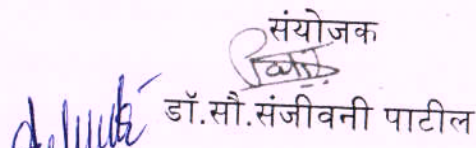 संयोजक
डॉ.सौ.संजीवनी पाटील